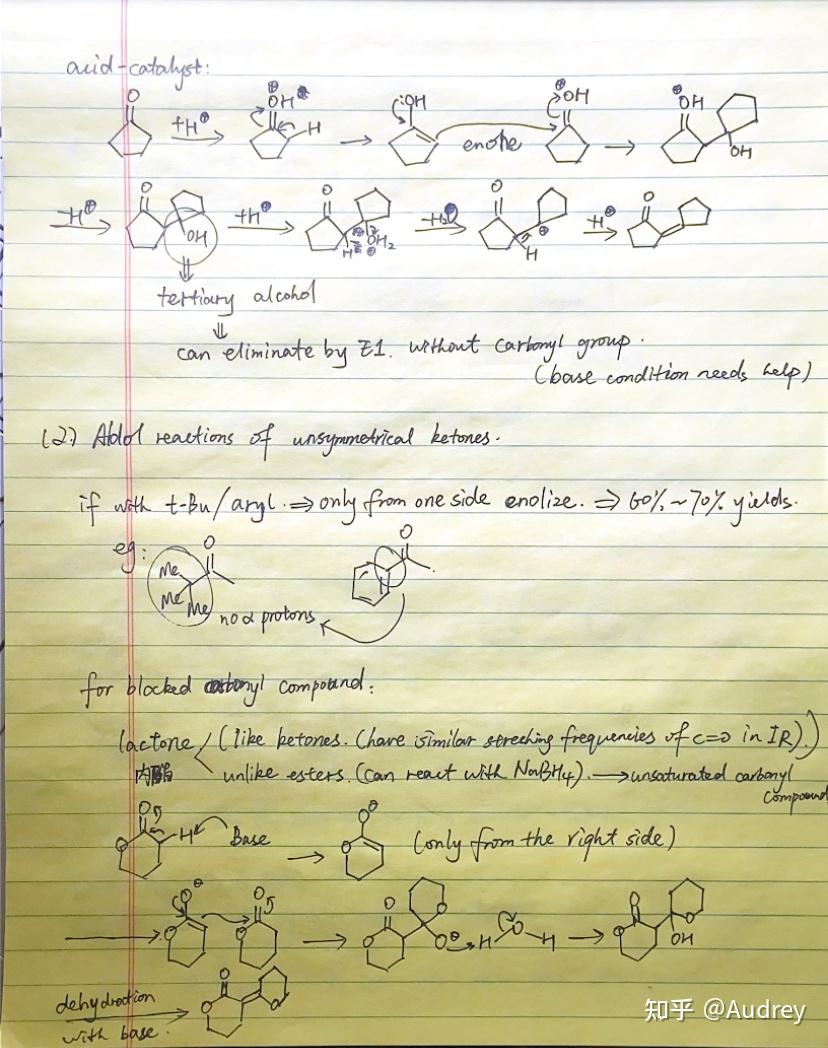 acid-catalyst:
O +H⊕ ⊕OH H :OH enone ⊕OH ⊕OH OH
-H⊕ O OH +H⊕ O H OH₂ ⊕ -H₂O O ⊕ H -H⊕ O
⇓
tertiary alcohol
⇓
can eliminate by E1. without carbonyl group.
(base condition needs help)
(2.) Aldol reactions of unsymmetrical ketones.
if with t-Bu/aryl. ⇒ only from one side enolize. ⇒ 60%~70% yields.
eg: Me Me Me O O
no α protons
for blocked carbonyl compound:
lactone (like ketones. (have similar streching frequencies of C=O in IR).)
内酯 unlike esters. (can react with NaBH4). → unsaturated carbonyl
compound
O O H Base → O⊖ O (only from the right side)
→ O⊖ O O O → O O O O⊖ H O H → O O O OH
dehydration
with base. O O O
知乎 @Audrey